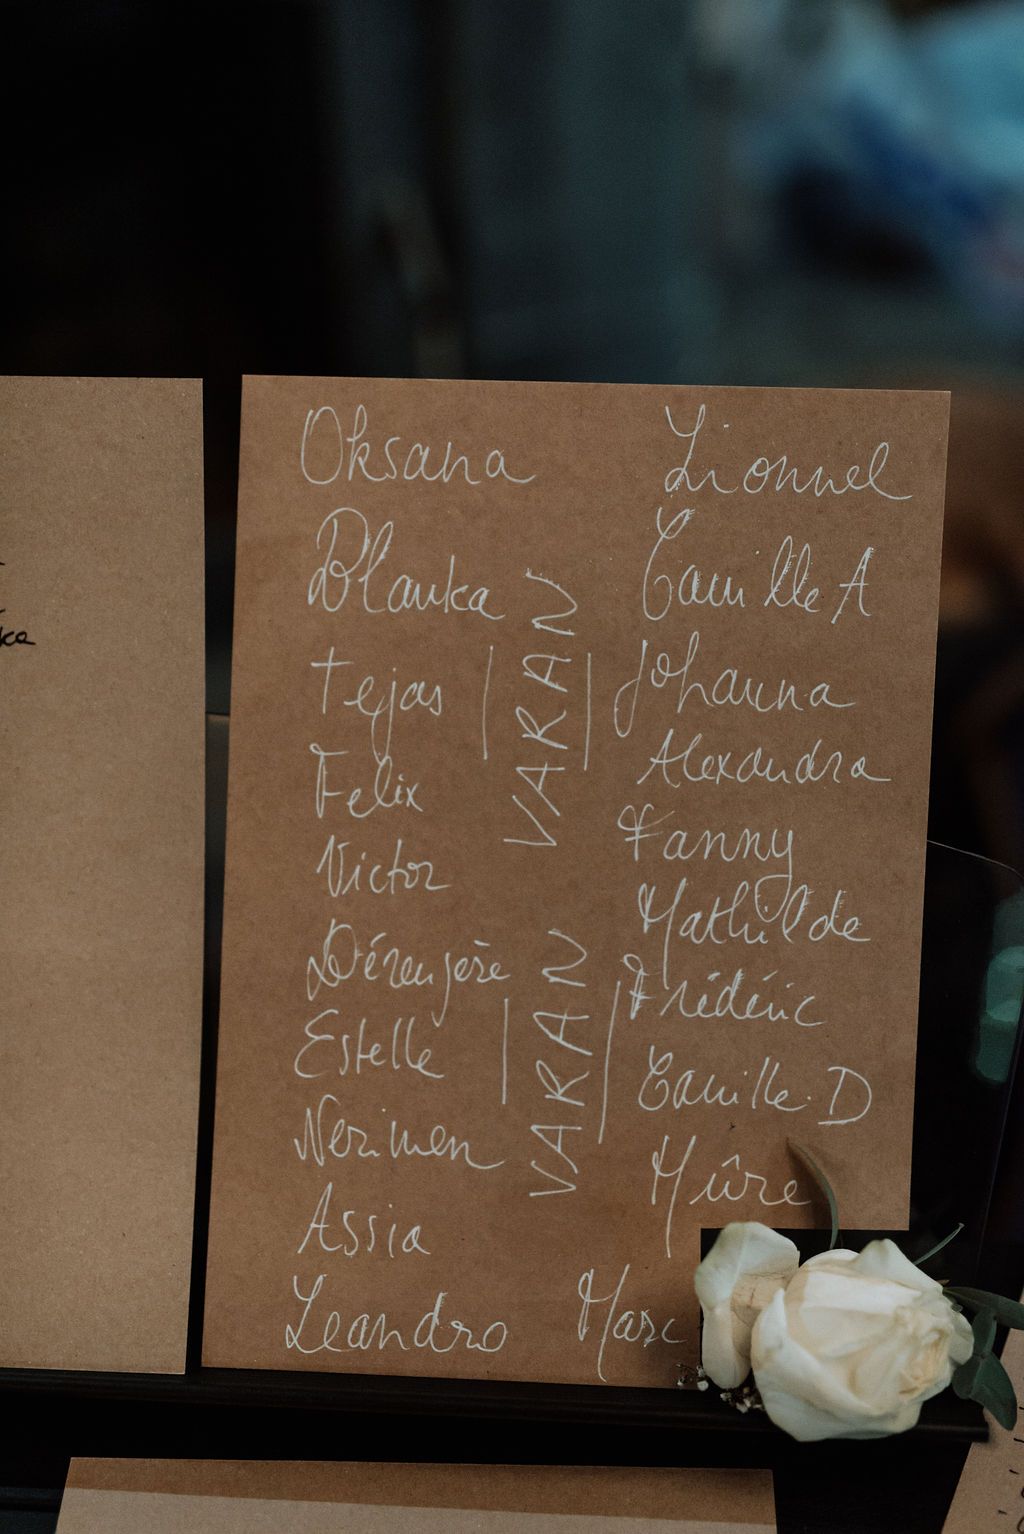 Oksana
Blanka
Tejas
Felix
Victor
Bérengère
Estelle
Nerimen
Assia
Leandro
VARAN
VARAN
Lionnel
Camille A
Johanna
Alexandra
Fanny
Mathilde
Frédéric
Camille.D
Mûre
Marc